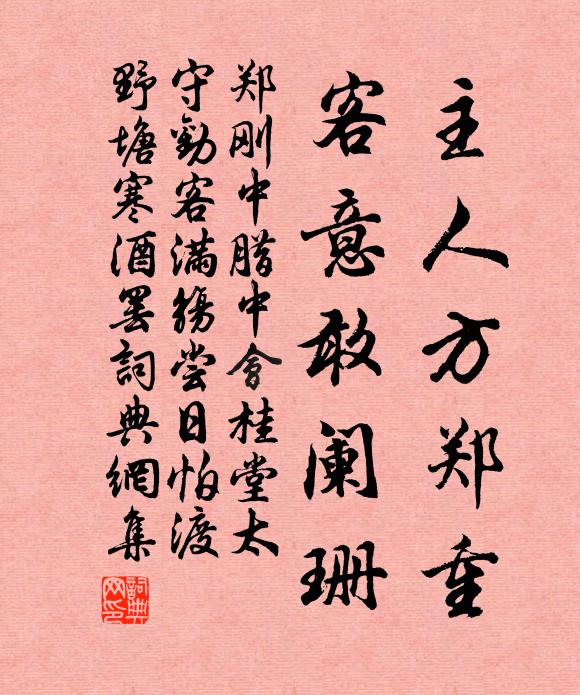 主人方郑重
客意敢阑珊
郑刚中腊中会桂堂太
守勸客满觞尝日怕渡
野塘寒酒罢詞典網集
詞典网印